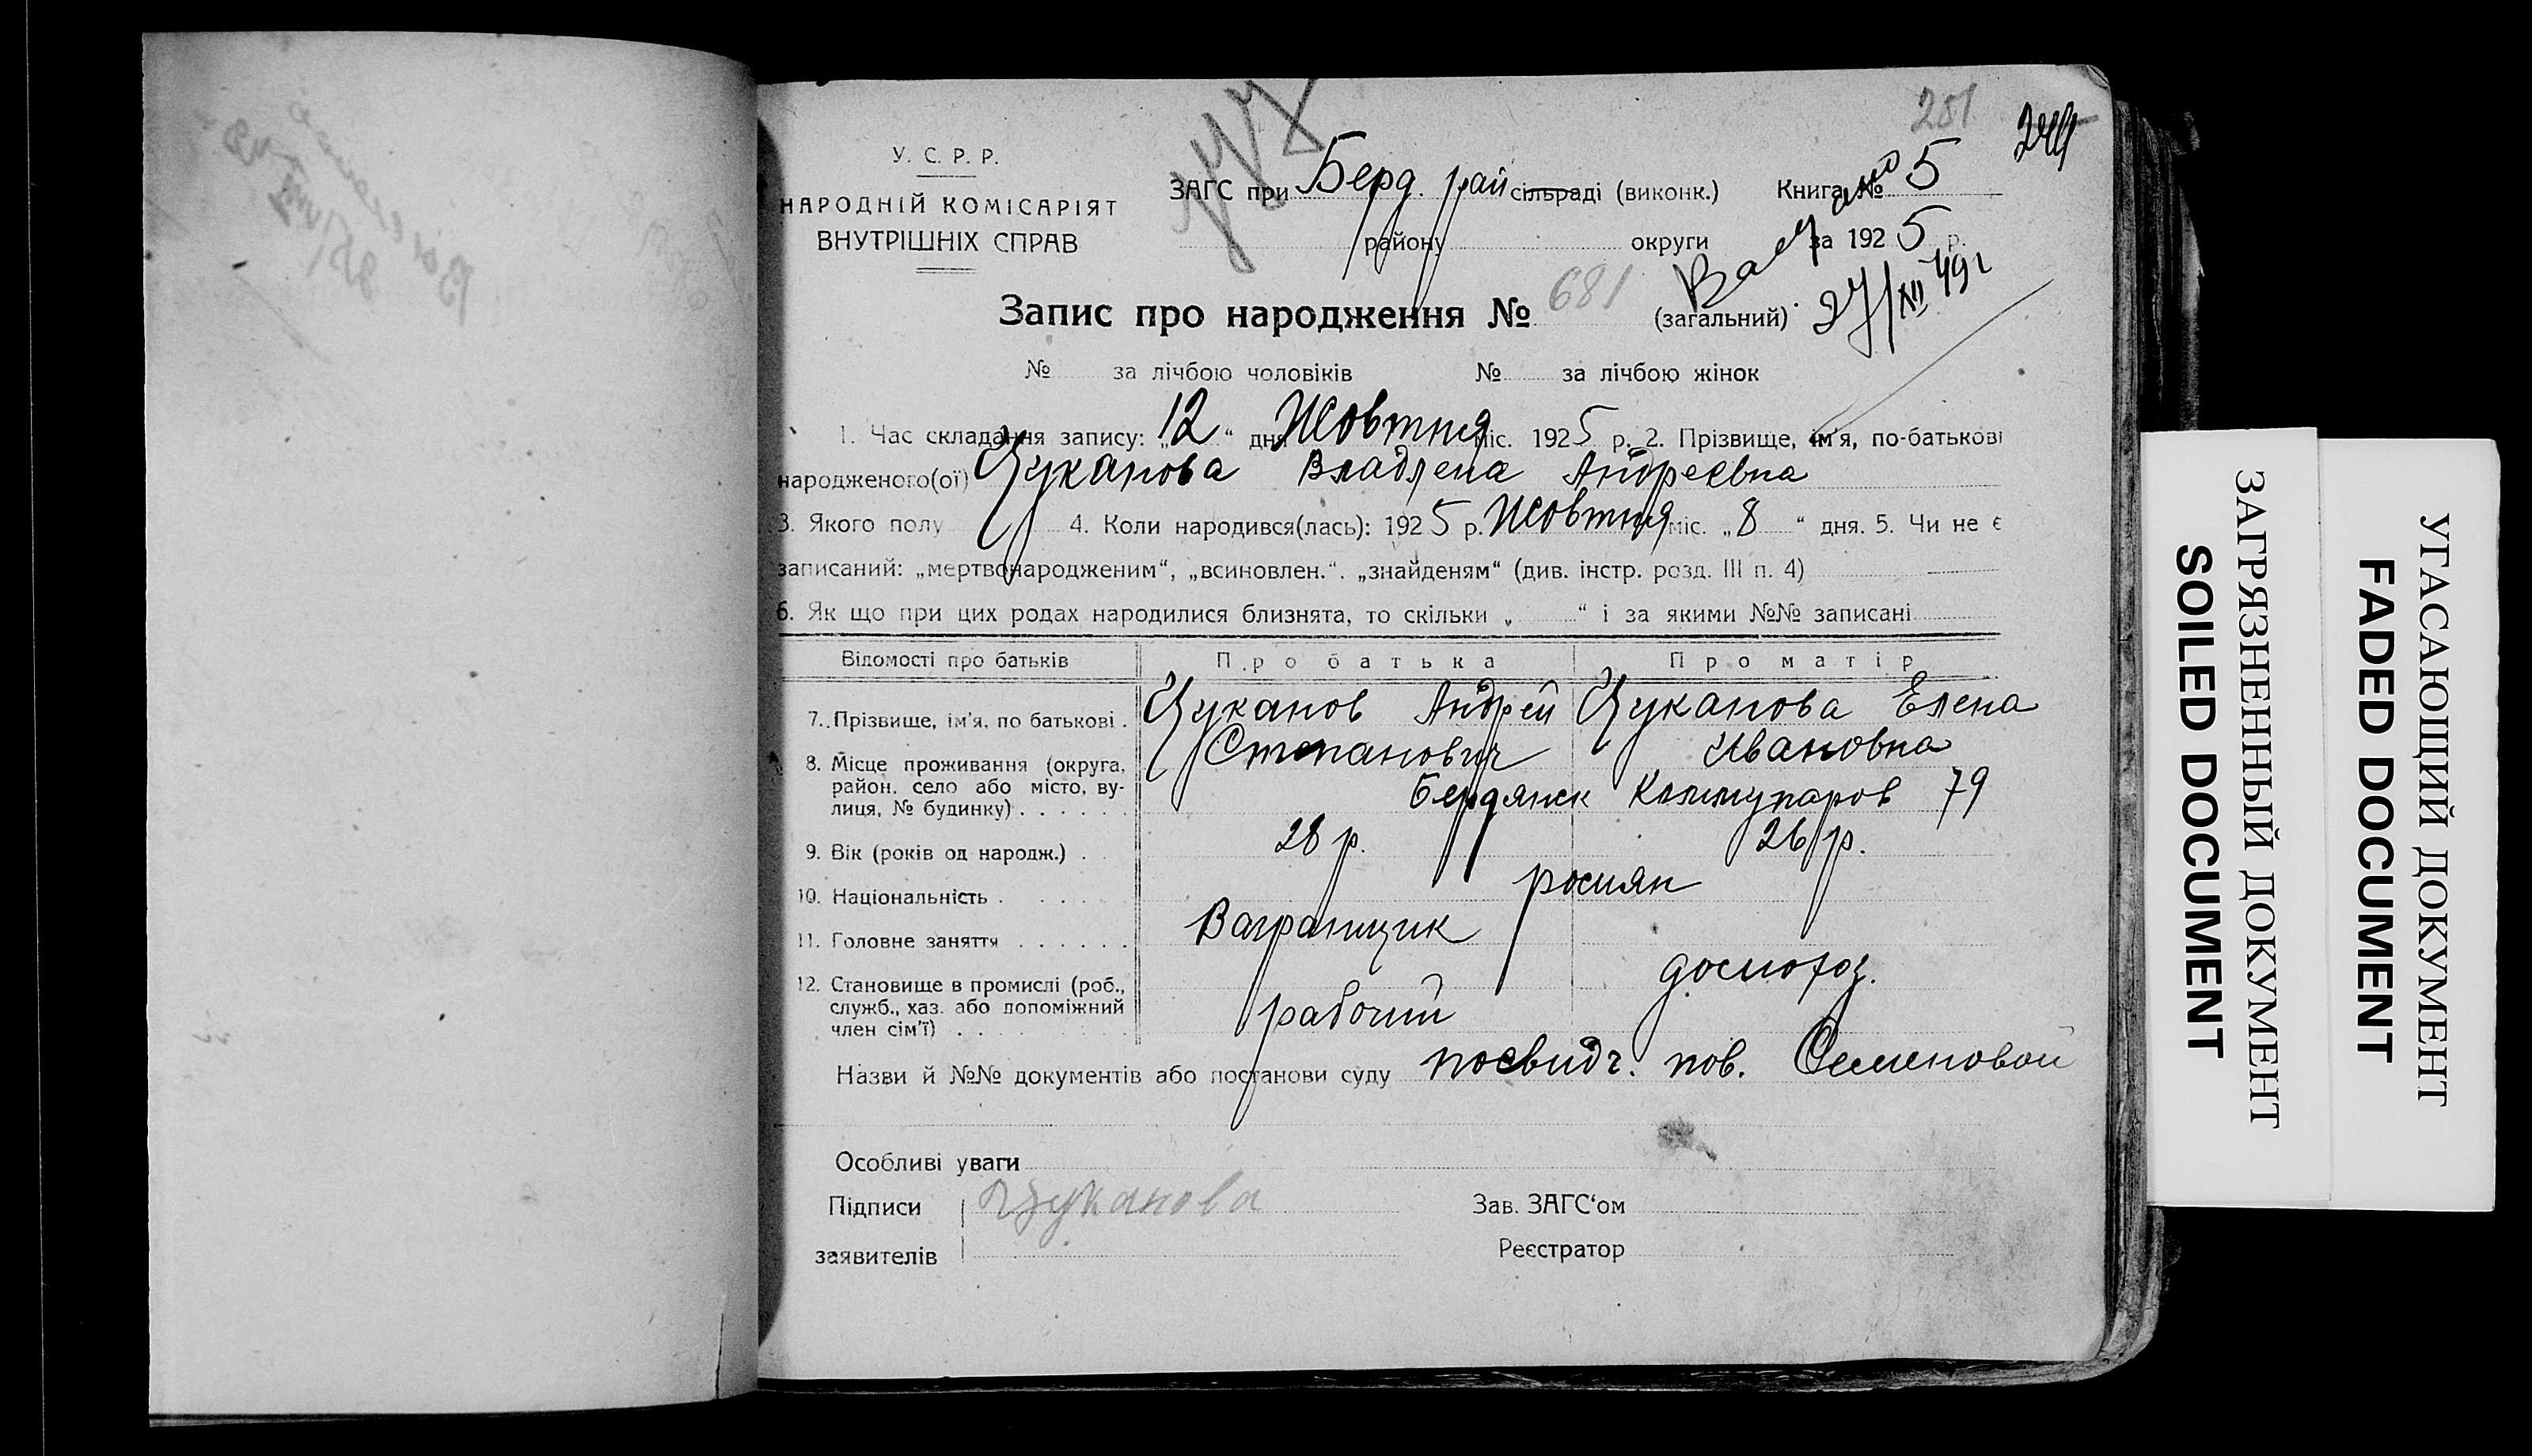 251
У. С. Р. Р.
НАРОДНІЙ КОМІСАРІЯТ
ВНУТРІШНІХ СПРАВ
ЗАГС при Берд. рай сільраді (виконк.) Книга № 5
району округи за 1925 р.
27/XII 49 г
Запис про народження № 681 (загальний)
№ за лічбою чоловіків № за лічбою жінок
1. Час складання запису: „12“ дня Жовтня міс. 1925 р. 2. Прізвище, ім'я, по-батькові
народженого(ої) Цуканова Владлена Андреевна
3. Якого полу 4. Коли народився(лась): 1925 р. Жовтня міс. „8“ дня. 5. Чи не є
записаний: „мертвонародженим“, „всиновлен.“. „знайденям“ (див. інстр. розд. III п. 4)
6. Як що при цих родах народилися близнята, то скільки „ “ і за якими №№ записані
Відомості про батьків Про батька Про матір
7. Прізвище, ім'я, по батькові . Цуканов Андрей Степанович Цуканова Елена Ивановна
8. Місце проживання (округа, район, село або місто, вулиця, № будинку) . . . . . . Бердянск Коммунаров 79
9. Вік (років од народж.) . . 28 р. 26 р.
10. Національність . . . . . росиян
11. Головне заняття . . . . . . Вагранщик
12. Становище в промислі (роб., служб., хаз. або допоміжний член сім'ї) . . . рабочий домохоз.
Назви й №№ документів або постанови суду посвидч. пов. Семеновой
Особливі уваги
Підписи заявителів Цуканова
Зав. ЗАГС'ом
Реєстратор
ЗАГРЯЗНЕННЫЙ ДОКУМЕНТ
SOILED DOCUMENT
УГАСАЮЩИЙ ДОКУМЕНТ
FADED DOCUMENT